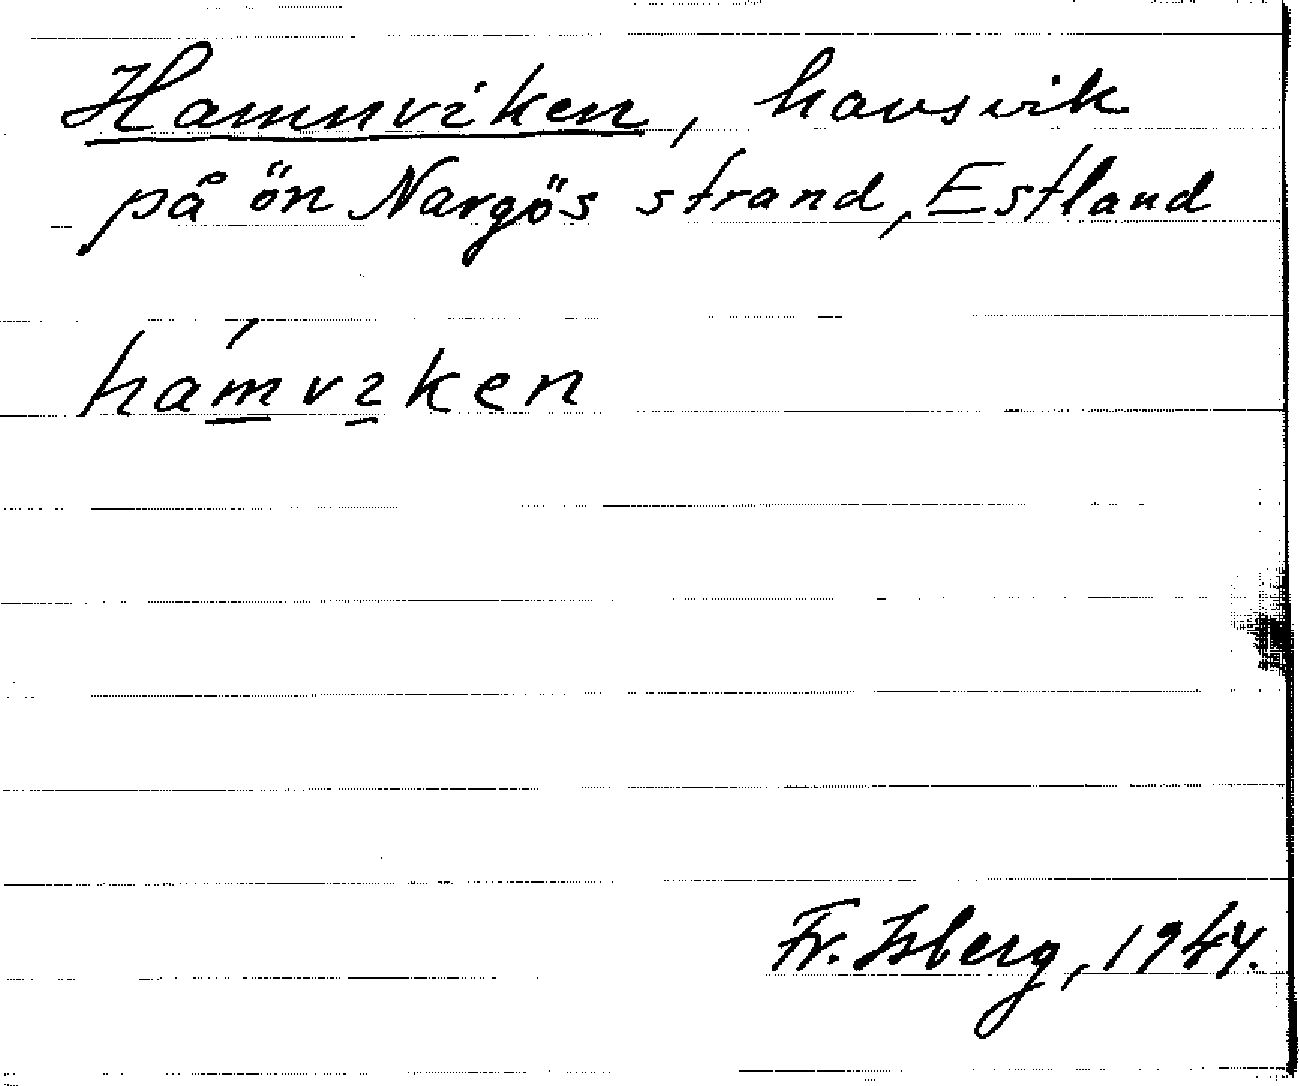 Hamnviken, havsvik
på ön Nargös strand, Estland
hám̲vi̲ken
Fr. Isberg, 1944.